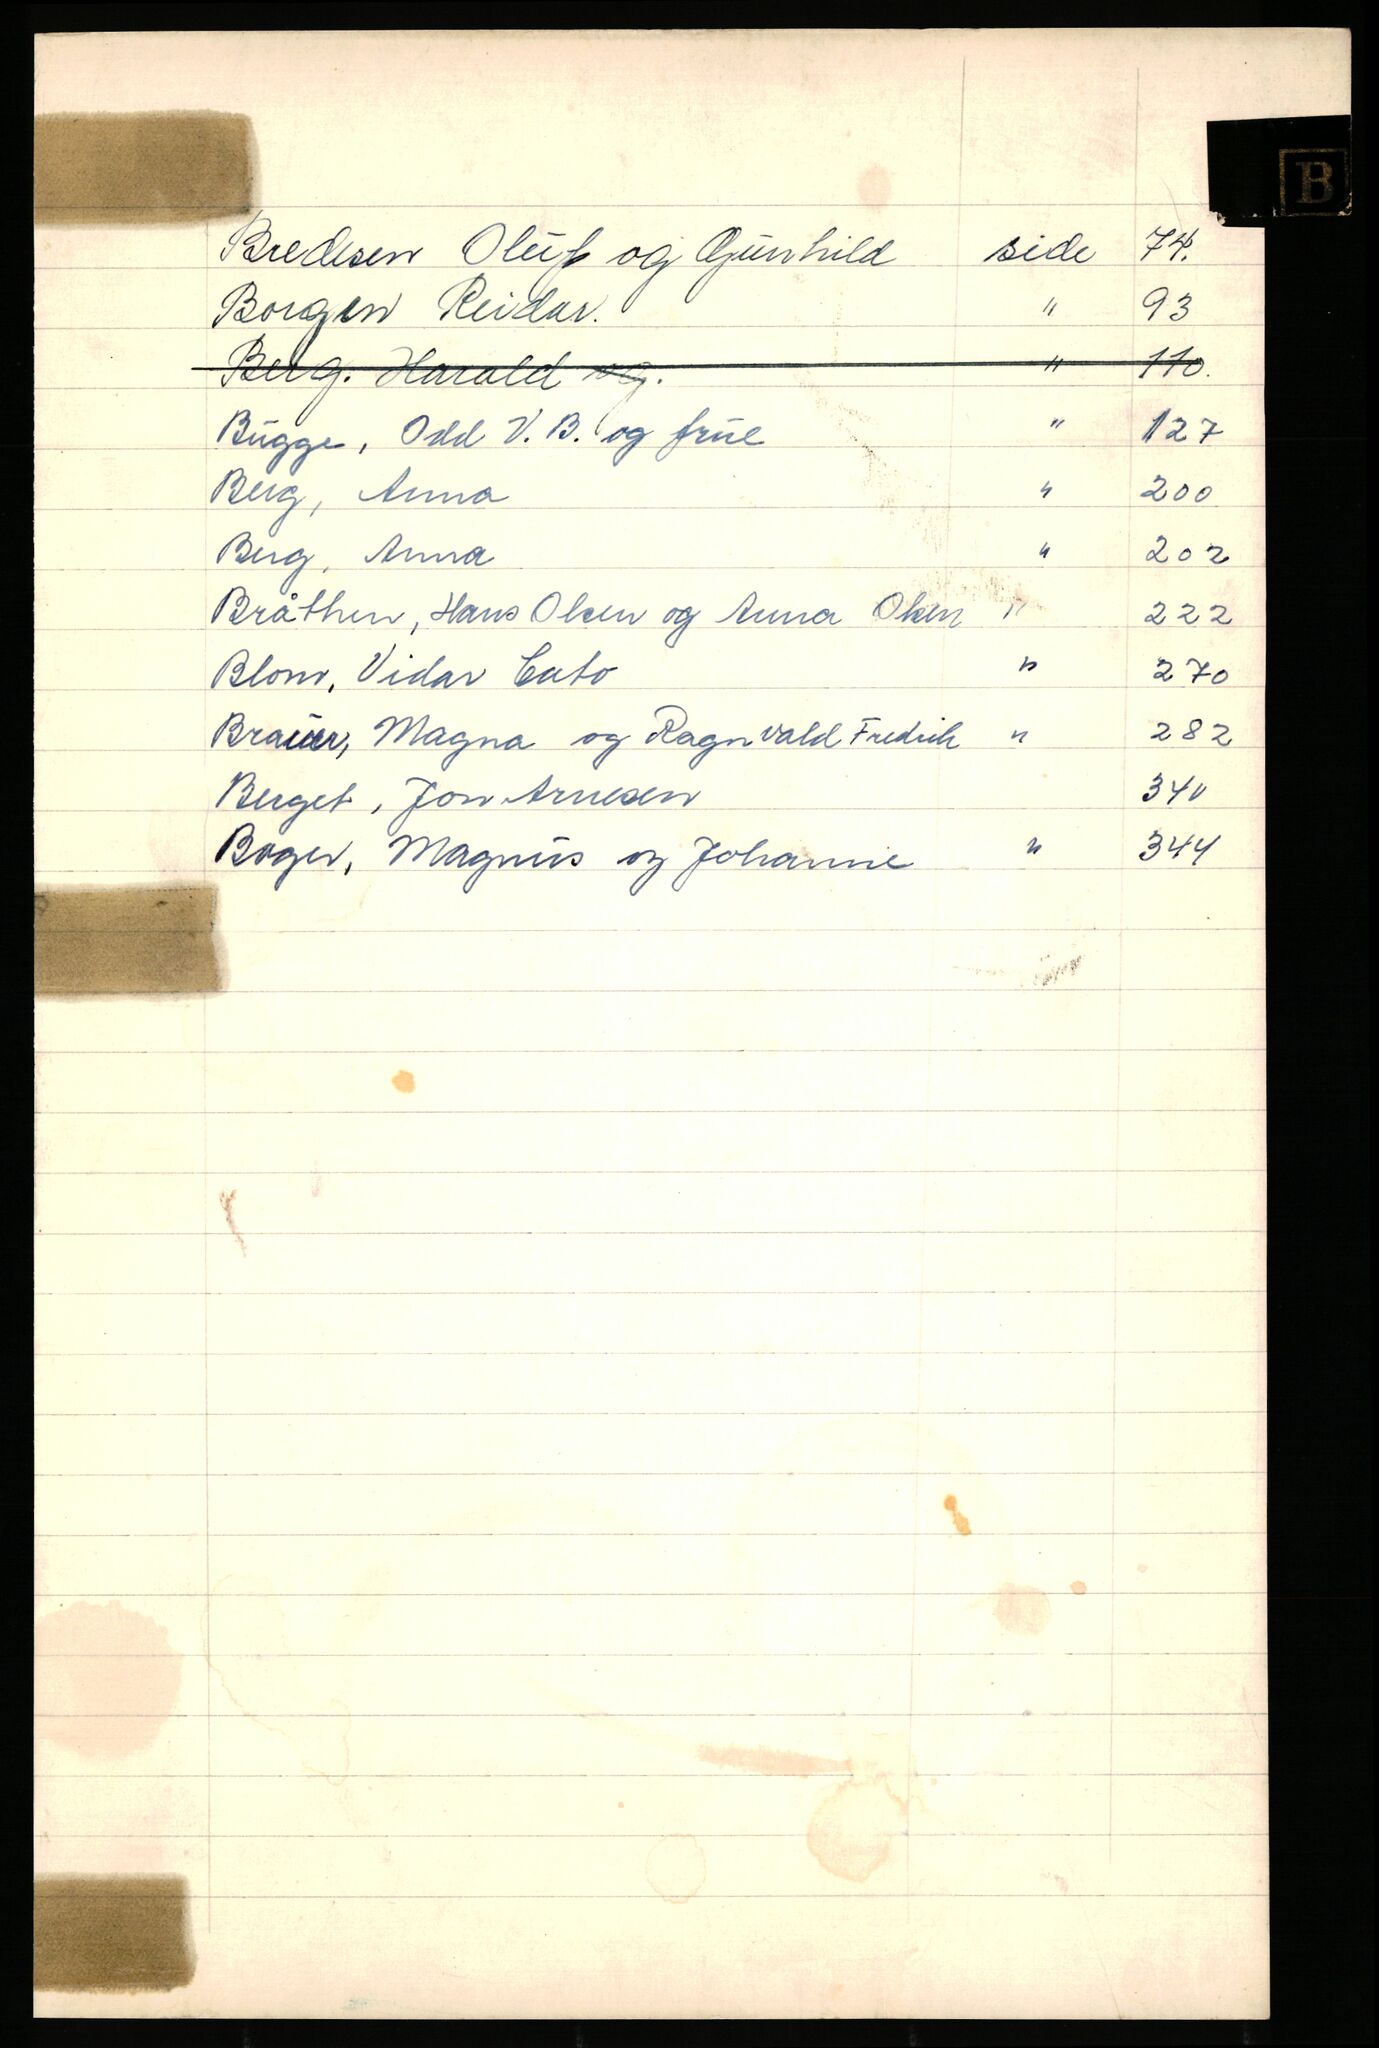 B
Bredesen Oluf og Gunhild side 74.
Borgen Reidar. " 93
Berg. Harald og. " 110.
Bugge, Odd V. B. og frue " 127
Berg, Anna " 200
Berg, Anna " 202
Bråthen, Hans Olsen og Anna Olsen " 222
Blom, Vidar Cato " 270
Brauer, Magna og Ragnvald Fredrik " 282
Berget, Jon Arnesen 340
Boger, Magnus og Johanne " 344